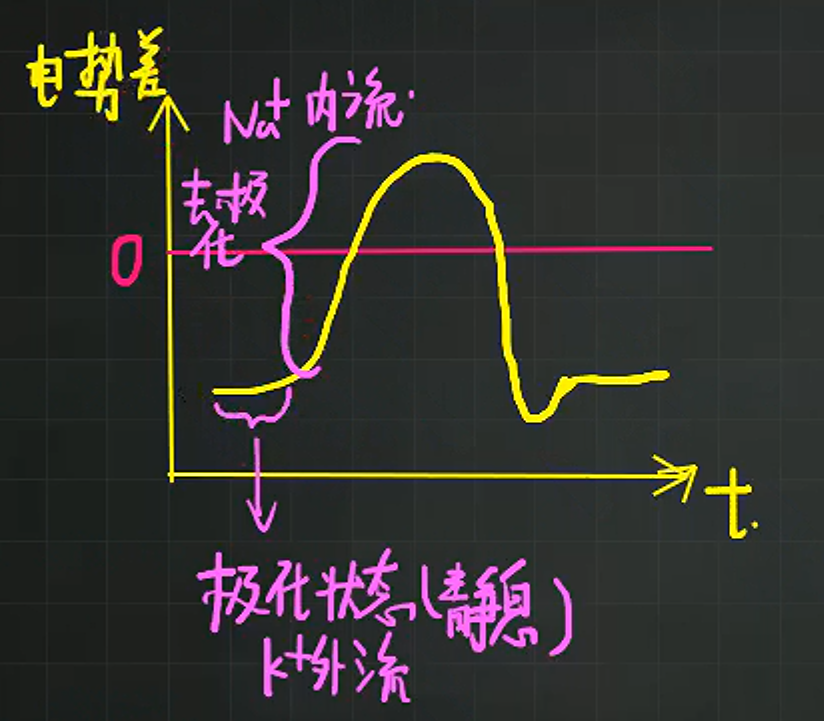 电势差
Na⁺内流.
去极
化
0
t.
极化状态(静息)
k⁺外流